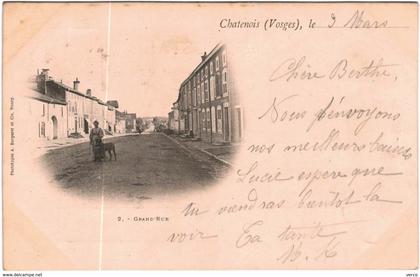 Chatenois (Vosges), le 3 Mars
Chère Berthe,
Nous t'envoyons
nos meilleurs baisers
Lucie espère que
tu viendras bientôt la
voir Ta tante
M. K
2. - GRAND-RUE
Phototypie A. Bergeret et Cie, Nancy
www.delcampe.net
verco